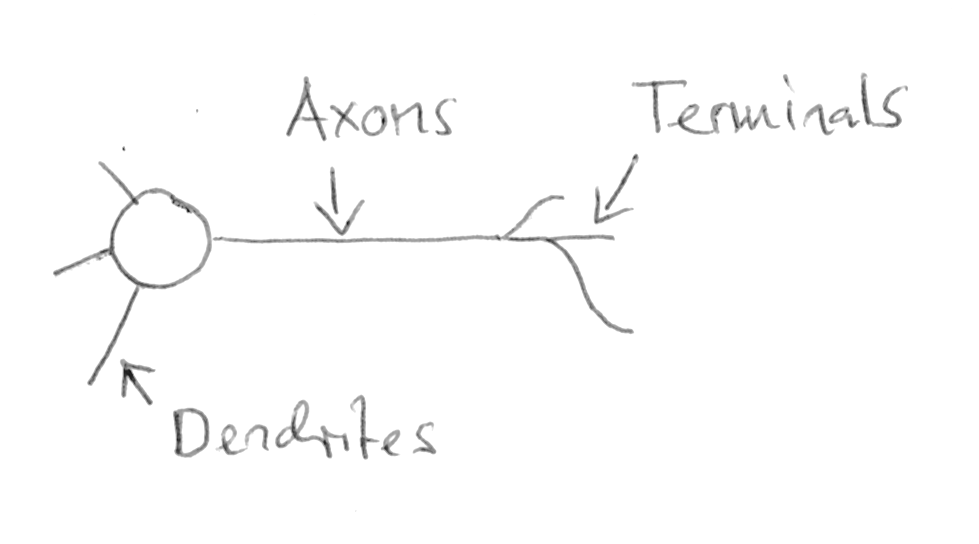 Axons
Terminals
Dendrites